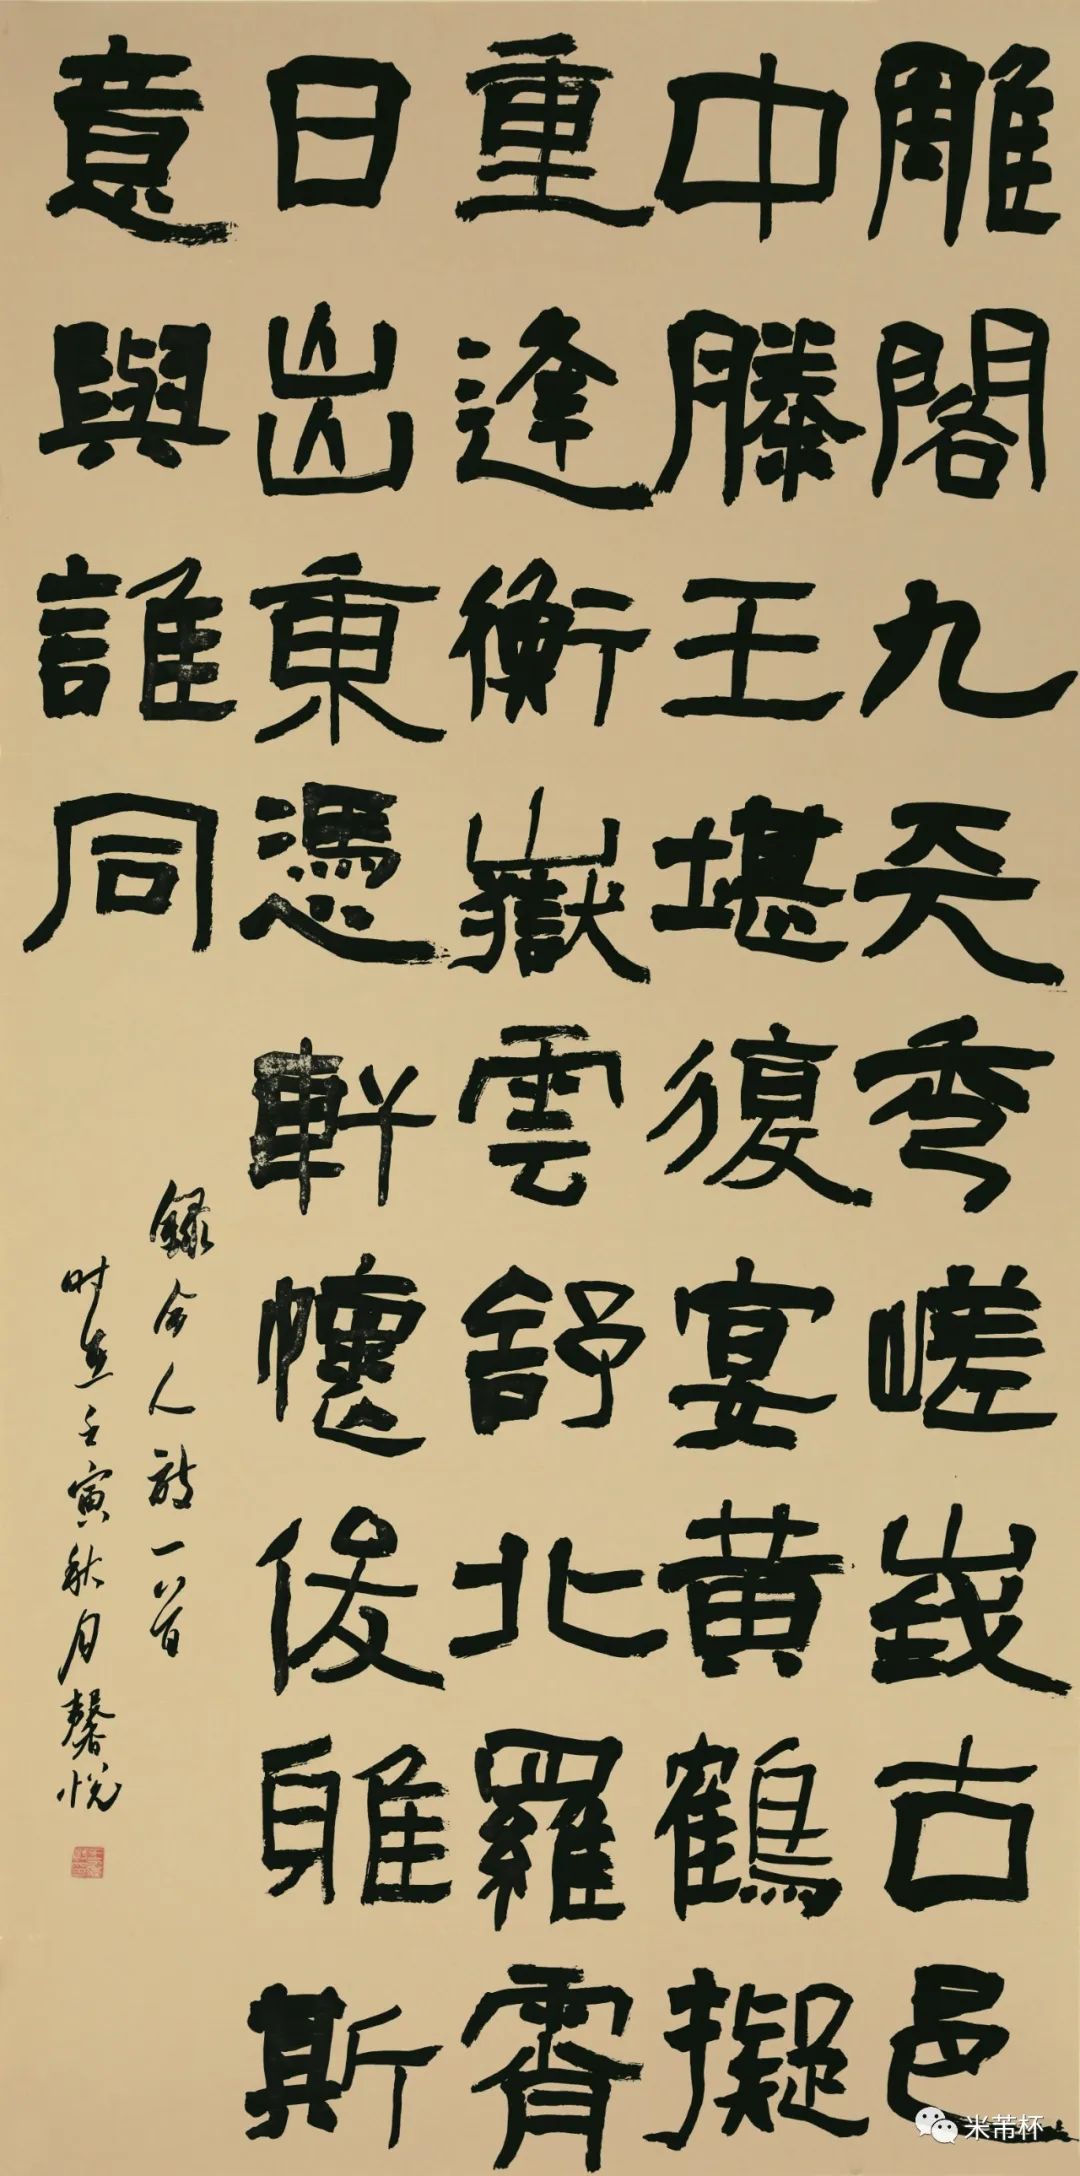 雕閣九天秀嵯峩古邑
中滕王堪復宴黄鶴擬
重逢衡嶽雲舒北羅霄
日出東憑軒懷俊雅斯
意與誰同
録今人詩一首
时在壬寅秋月馨悦
米芾杯